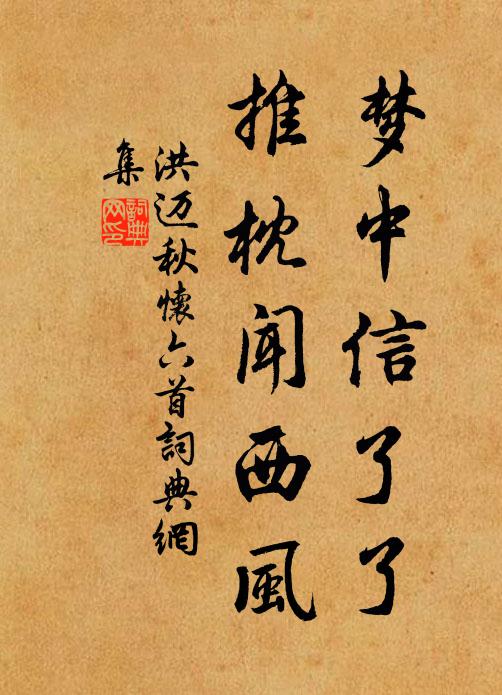 梦中信了了
推枕闻西風
洪迈秋懷六首詞典網
集
詞典网印